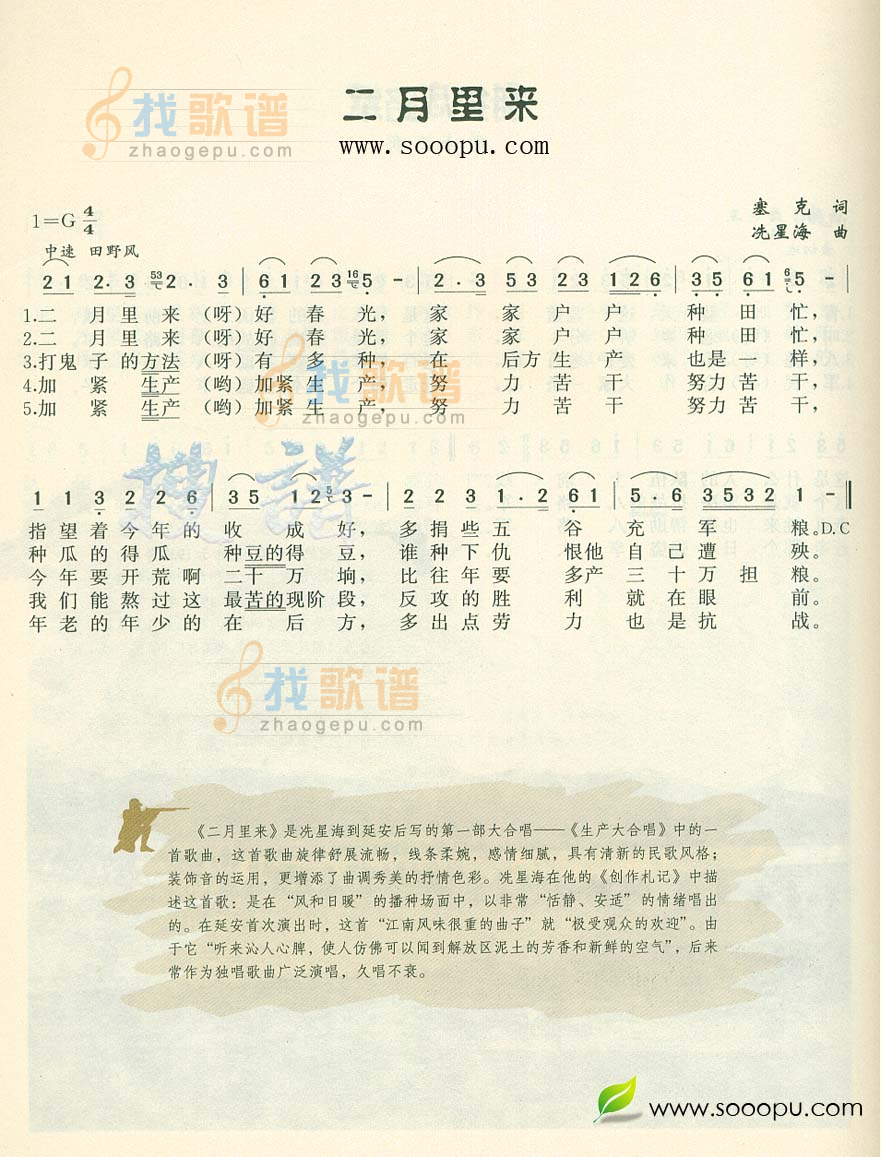 找歌谱
zhaogepu.com
二月里来
www.sooopu.com
1=G 4/4
塞 克 词
冼星海 曲
中速 田野风
2 1 2. 3 53 2. . 3 6 1 2 3 16 5. - 2 . 3 5 3 2 3 1 2 6 3 5 6 1 6 5 -
1.二 月里来(呀)好春光,家 家户户 种田忙,
2.二 月里来(呀)好春光,家 家户户 种田忙,
3.打鬼子的方法(呀)有多种,在 后方生产 也是一样,
4.加 紧 生产(哟)加紧生产,努 力苦干 努力苦干,
5.加 紧 生产(哟)加紧生产,努 力苦干 努力苦干,
1 1 3 2 2 6 3 5 1 2 5 3 - 2 2 3 1 . 2 6 1 5 . 6 3 5 3 2 1 -
指望着今年的 收 成 好,多捐些五 谷 充 军 粮。D.C
种瓜的得瓜 种豆的得豆,谁种下仇 恨他自己遭 殃。
今年要开荒啊 二十万垧,比往年要 多产三十万担粮。
我们能熬过这 最苦的现阶段,反攻的胜 利就在眼 前。
年老的年少的在 后 方,多出点劳 力也是抗 战。
找歌谱
zhaogepu.com
搜谱
找歌谱
zhaogepu.com
《二月里来》是冼星海到延安后写的第一部大合唱——《生产大合唱》中的一
首歌曲,这首歌曲旋律舒展流畅,线条柔婉,感情细腻,具有清新的民歌风格;
装饰音的运用,更增添了曲调秀美的抒情色彩。冼星海在他的《创作札记》中描
述这首歌:是在“风和日暖”的播种场面中,以非常“恬静、安适”的情绪唱出
的。在延安首次演出时,这首“江南风味很重的曲子”就“极受观众的欢迎”。由
于它“听来沁人心脾,使人仿佛可以闻到解放区泥土的芳香和新鲜的空气”,后来
常作为独唱歌曲广泛演唱,久唱不衰。
www.sooopu.com